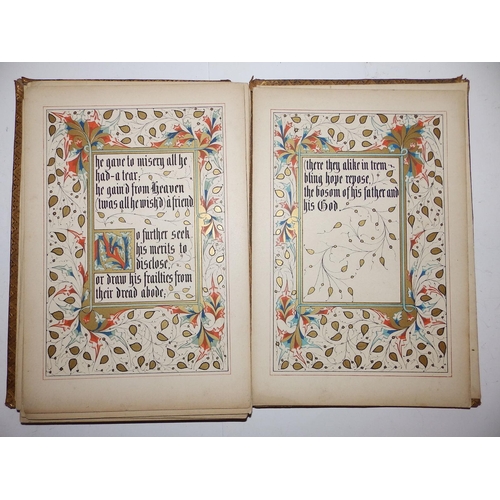 he gave to misery all he
had - a tear,
he gain'd from Heaven
'twas all he wish'd) a friend
No further seek
his merits to
disclose,
or draw his frailties from
their dread abode;
(there they alike in trem-
bling hope repose,
the bosom of his father and
his God.